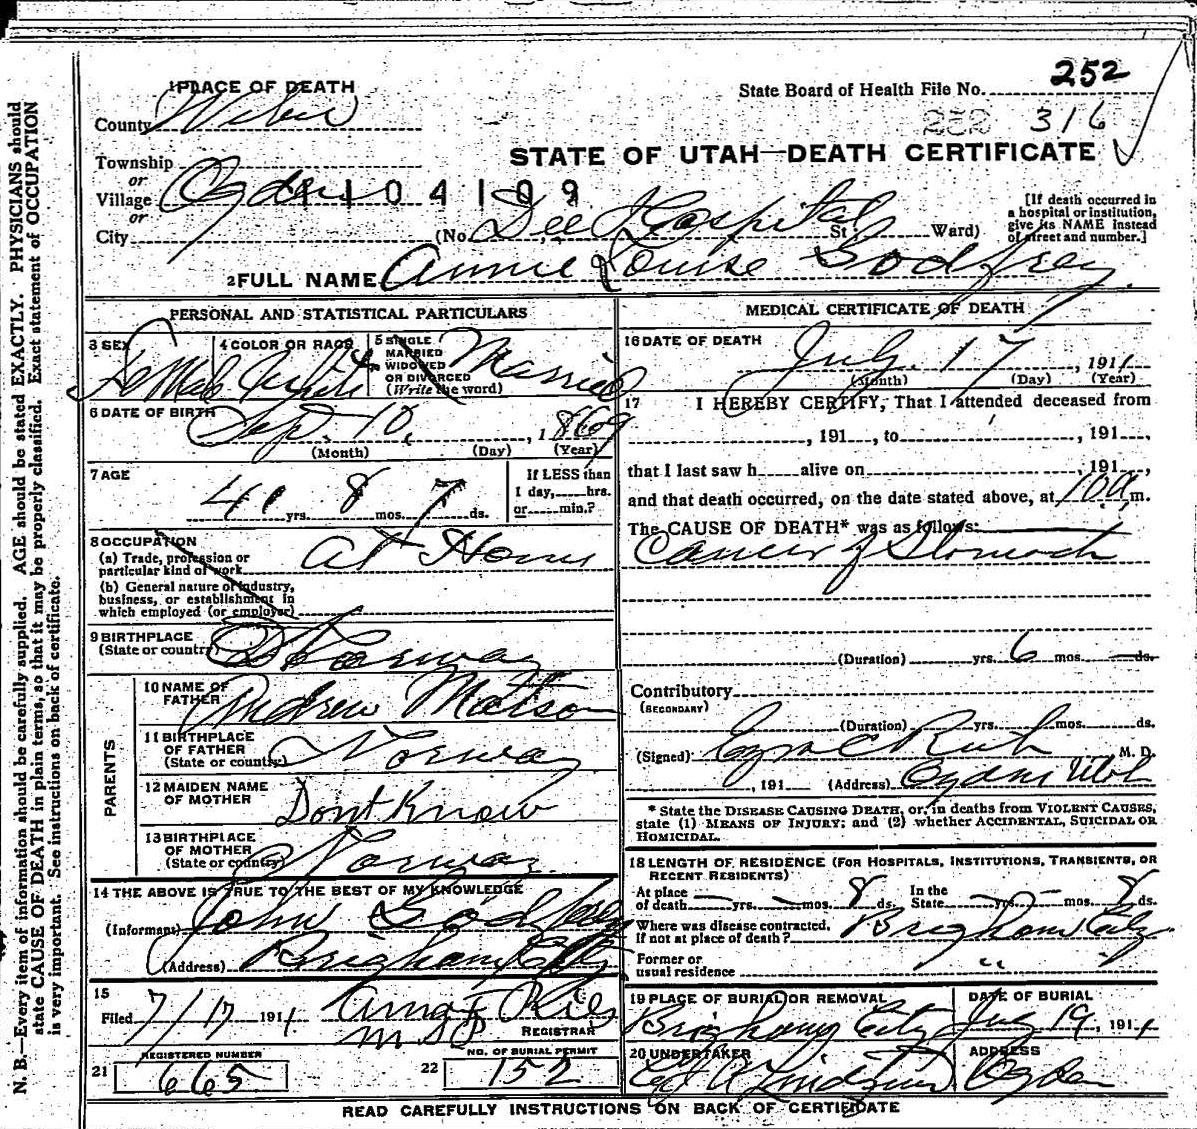 252
State Board of Health File No.
316
1 PLACE OF DEATH
County Weber
STATE OF UTAH—DEATH CERTIFICATE
Township
or
Village Ogden
1104109
or
City (No. Dee Hospital St. Ward)
[If death occurred in
a hospital or institution,
give its NAME instead
of street and number.]
2 FULL NAME Annie Louise Godfrey
PERSONAL AND STATISTICAL PARTICULARS
3 SEX Female
4 COLOR OR RACE White
5 SINGLE
MARRIED
WIDOWED
OR DIVORCED
(Write the word)
Married
6 DATE OF BIRTH Sept. 10, 1869
(Month) (Day) (Year)
7 AGE
41 yrs. 8 mos. 7 ds.
If LESS than
1 day, hrs.
or min.?
8 OCCUPATION
(a) Trade, profession or
particular kind of work At Home
(b) General nature of industry,
business, or establishment in
which employed (or employer)
9 BIRTHPLACE
(State or country) Norway
PARENTS
10 NAME OF
FATHER Andrew Matson
11 BIRTHPLACE
OF FATHER
(State or country) Norway
12 MAIDEN NAME
OF MOTHER Dont Know
13 BIRTHPLACE
OF MOTHER
(State or country) Norway
14 THE ABOVE IS TRUE TO THE BEST OF MY KNOWLEDGE
(Informant) John Godfrey
(Address) Brigham City
15
Filed 7/17 1911
REGISTRAR
21 REGISTERED NUMBER
665
22 NO. OF BURIAL PERMIT
152
MEDICAL CERTIFICATE OF DEATH
16 DATE OF DEATH July 17, 1911
(Month) (Day) (Year)
17 I HEREBY CERTIFY, That I attended deceased from
, 191 , to , 191 ,
that I last saw h alive on , 191 ,
and that death occurred, on the date stated above, at 10 a. m.
The CAUSE OF DEATH* was as follows:
Cancer of Stomach
(Duration) yrs. 6 mos. — ds.
Contributory
(SECONDARY)
(Duration) yrs. mos. ds.
(Signed) Ezra C Rich M. D.
, 191 (Address) Ogden Utah
* State the DISEASE CAUSING DEATH, or, in deaths from VIOLENT CAUSES,
state (1) MEANS OF INJURY; and (2) whether ACCIDENTAL, SUICIDAL OR
HOMICIDAL.
18 LENGTH OF RESIDENCE (FOR HOSPITALS, INSTITUTIONS, TRANSIENTS, OR
RECENT RESIDENTS)
At place
of death — yrs. — mos. 8 ds.
In the
State — yrs. — mos. 8 ds.
Where was disease contracted,
if not at place of death? Brigham City
Former or
usual residence " "
19 PLACE OF BURIAL OR REMOVAL
Brigham City
DATE OF BURIAL
July 19, 1911
20 UNDERTAKER
Lindquist
ADDRESS
Ogden
READ CAREFULLY INSTRUCTIONS ON BACK OF CERTIFICATE
N. B.—Every item of information should be carefully supplied. AGE should be stated EXACTLY. PHYSICIANS should
state CAUSE OF DEATH in plain terms, so that it may be properly classified. Exact statement of OCCUPATION
is very important. See instructions on back of certificate.